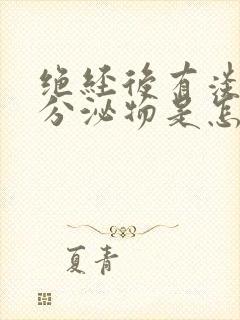 绝经后有淡
分泌物是怎
夏青